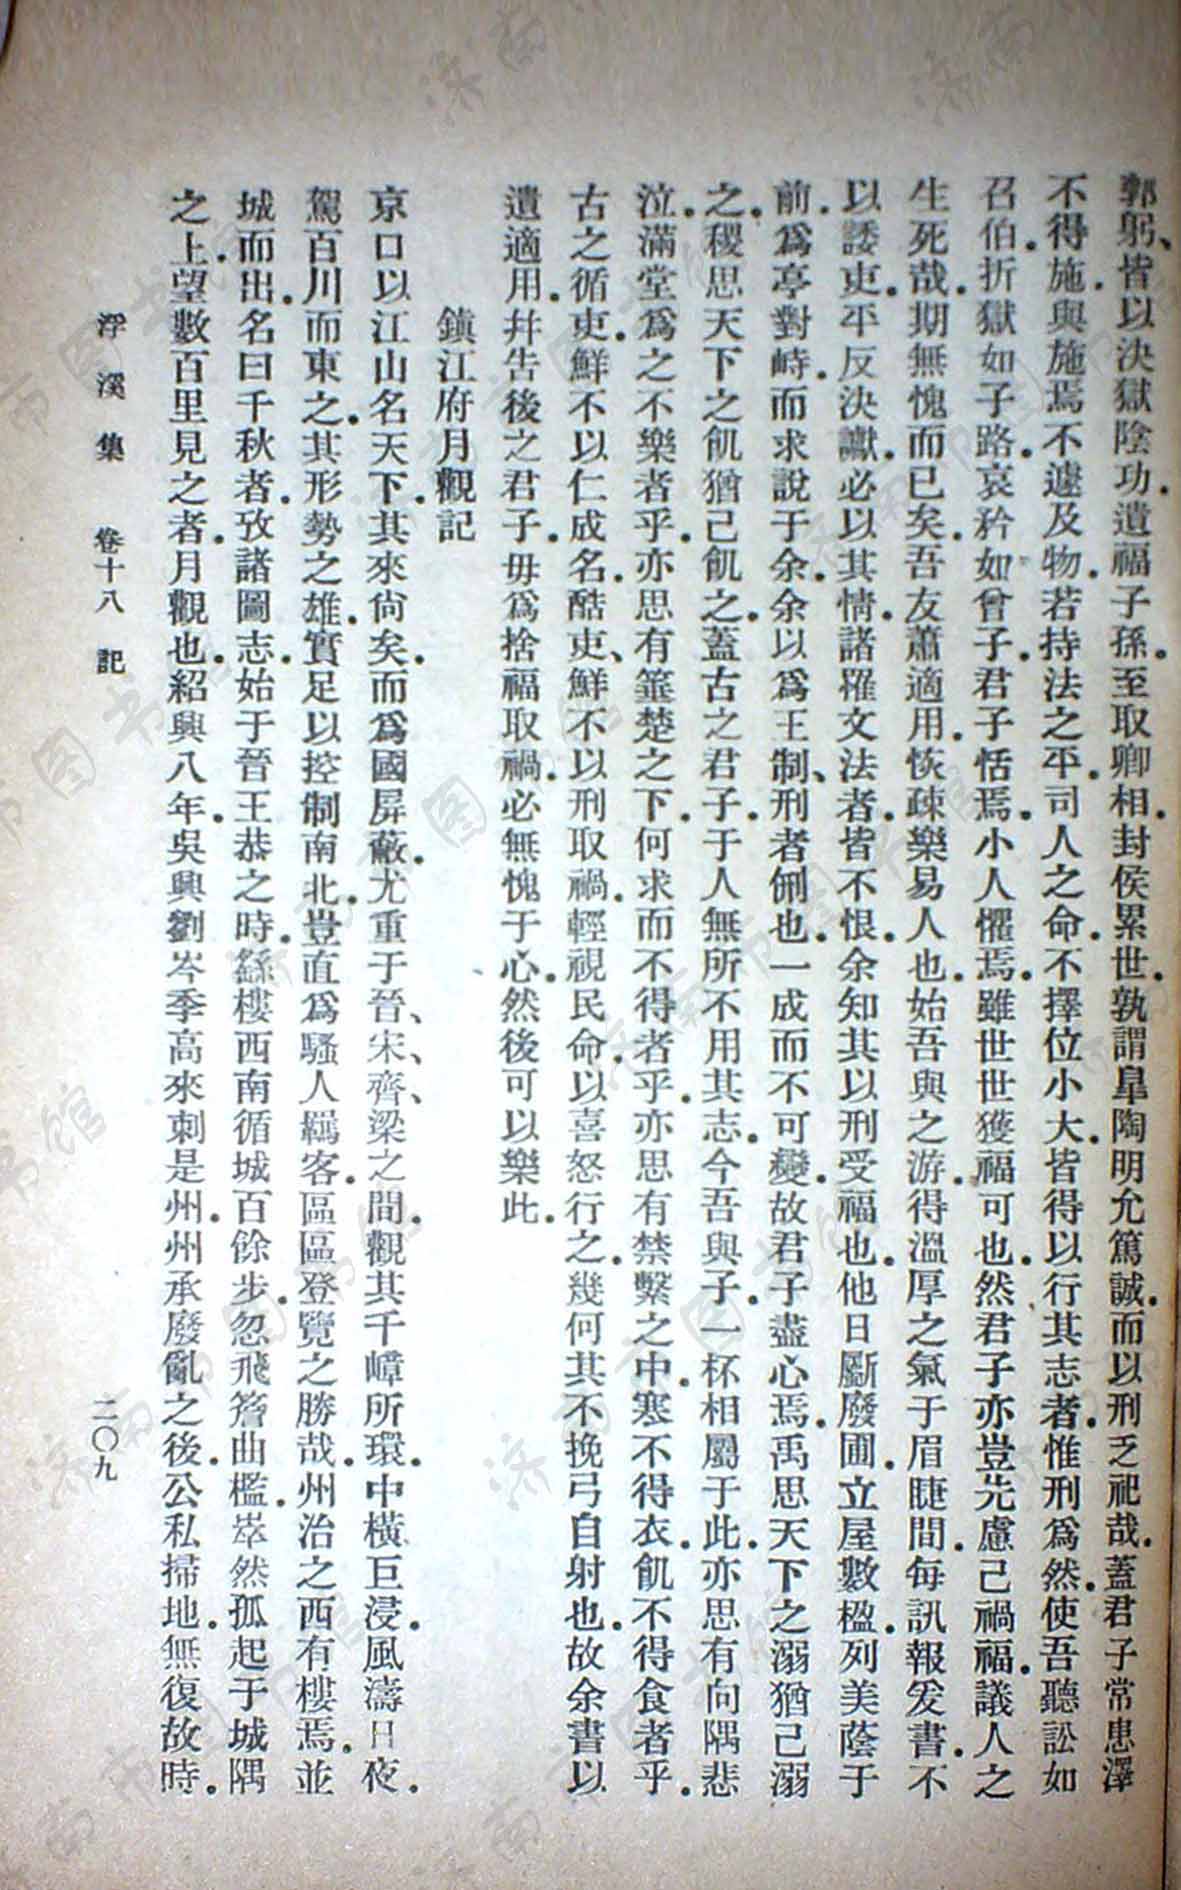 郭躬、皆以決獄陰功.遺福子孫.至取卿相.封侯累世.孰謂皐陶明允篤誠.而以刑乏祀哉.蓋君子常患澤
不得施.與施焉不遽及物.若持法之平.司人之命.不擇位小大.皆得以行其志者.惟刑爲然.使吾聽訟如
召伯.折獄如子路.哀矜如曾子.君子恬焉.小人懼焉.雖世世獲福可也.然君子亦豈先慮己禍福.議人之
生死哉.期無愧而已矣.吾友蕭適用.恢疎樂易人也.始吾與之游.得溫厚之氣于眉睫間.每訊報爰書.不
以諉吏.平反決讞.必以其情.諸罹文法者.皆不恨.余知其以刑受福也.他日斸廢圃.立屋數楹.列美蔭于
前.爲亭對峙.而求說于余.余以爲王制、刑者侀也.一成而不可變.故君子盡心焉.禹思天下之溺猶己溺
之.稷思天下之飢猶己飢之.蓋古之君子.于人無所不用其志.今吾與子.一杯相屬于此.亦思有向隅悲
泣.滿堂爲之不樂者乎.亦思有箠楚之下.何求而不得者乎.亦思有禁繫之中.寒不得衣.飢不得食者乎.
古之循吏.鮮不以仁成名.酷吏、鮮不以刑取禍.輕視民命.以喜怒行之.幾何其不挽弓自射也.故余書以
遺適用.幷告後之君子.毋爲捨福取禍.必無愧于心.然後可以樂此.
鎮江府月觀記
京口以江山名天下.其來尙矣.而爲國屏蔽.尤重于晉、宋、齊、梁之間.觀其千嶂所環.中橫巨浸.風濤日夜.
駕百川而東之.其形勢之雄.實足以控制南北.豈直爲騷人羈客.區區登覽之勝哉.州治之西有樓焉.並
城而出.名曰千秋者.攷諸圖志.始于晉王恭之時.繇樓西南循城百餘步.忽飛簷曲檻.崒然孤起于城隅
之上.望數百里見之者.月觀也.紹興八年.吳興劉岑季高來刺是州.州承廢亂之後.公私掃地.無復故時.
浮溪集 卷十八 記 二〇九